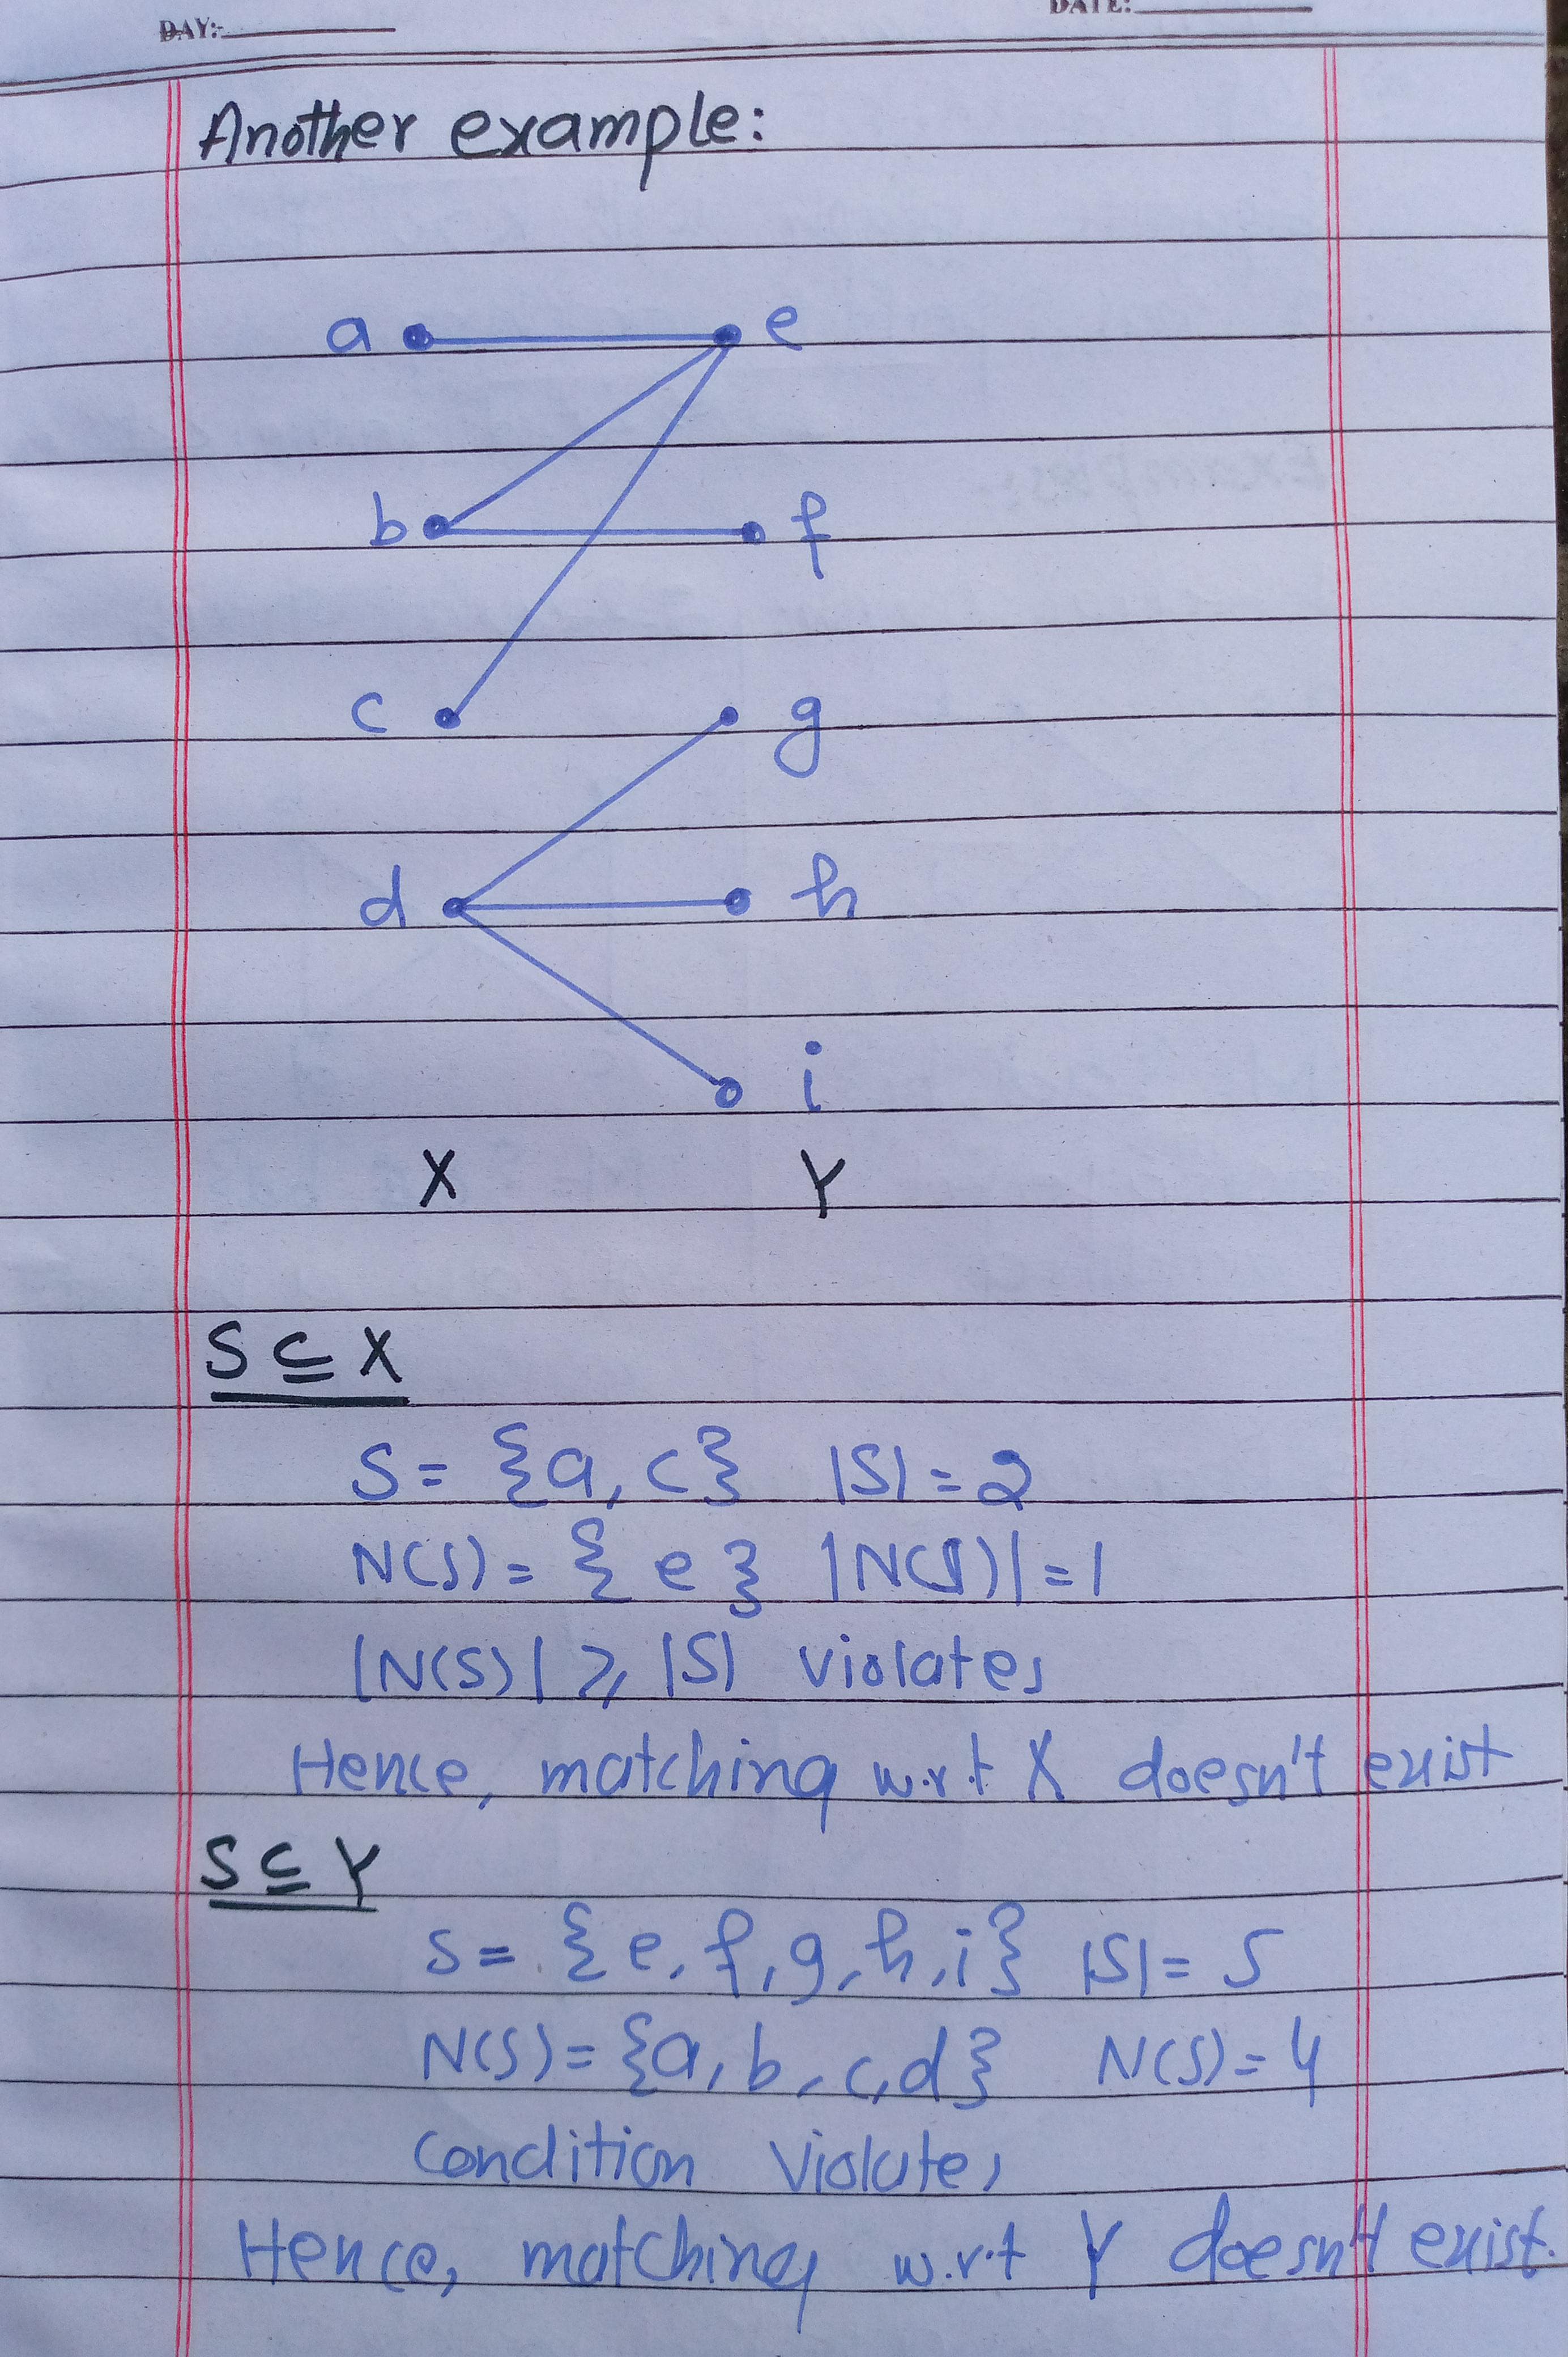 DAY:-
DATE:-
Another example:
a e
b f
c g
d h
i
X Y
S ⊆ X
S = {a, c} |S| = 2
N(S) = { e } |N(S)| = 1
|N(S)| ⩾ |S| violates
Hence, matching w.r.t X doesn't exist
S ⊆ Y
S = {e, f, g, h, i} |S| = 5
N(S) = {a, b, c, d} N(S) = 4
condition violates
Hence, matching w.r.t Y doesn't exist.